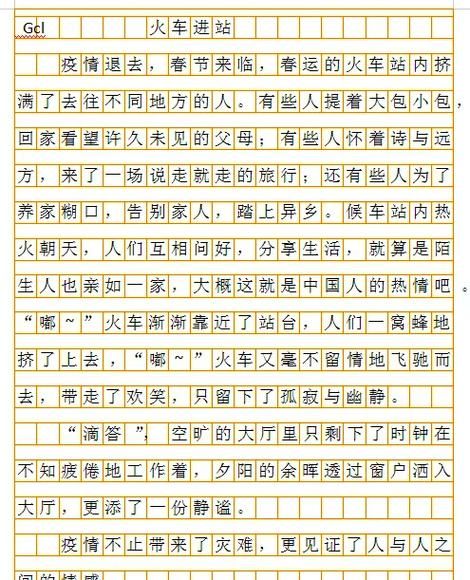 Gcl 火车进站
疫情退去，春节来临，春运的火车站内挤
满了去往不同地方的人。有些人提着大包小包，
回家看望许久未见的父母；有些人怀着诗与远
方，来了一场说走就走的旅行；还有些人为了
养家糊口，告别家人，踏上异乡。候车站内热
火朝天，人们互相问好，分享生活，就算是陌
生人也亲如一家，大概这就是中国人的热情吧。
“嘟~”火车渐渐靠近了站台，人们一窝蜂地
挤了上去，“嘟~”火车又毫不留情地飞驰而
去，带走了欢笑，只留下了孤寂与幽静。
“滴答”，空旷的大厅里只剩下了时钟在
不知疲倦地工作着，夕阳的余晖透过窗户洒入
大厅，更添了一份静谧。
疫情不止带来了灾难，更见证了人与人之
间的情感